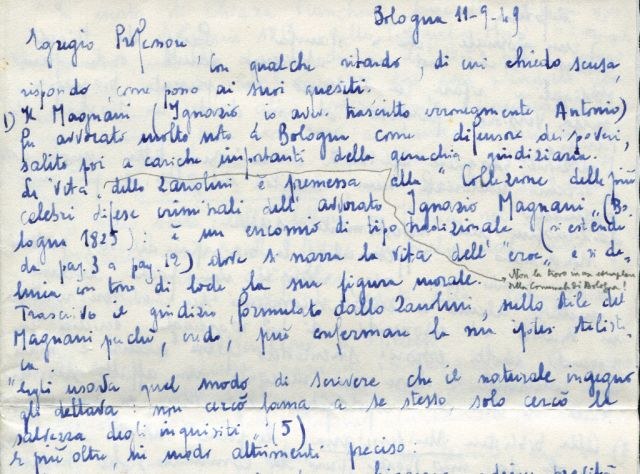 Bologna 11-9-49
Egregio Professore,
con qualche ritardo, di cui chiedo scusa,
rispondo come posso ai suoi quesiti.
1) Il Magnani (Ignazio, io avevo trascritto erroneamente Antonio)
fu avvocato molto noto a Bologna come difensore dei poveri,
salito poi a cariche importanti della gerarchia giudiziaria.
La Vita dello Zanolini è premessa alla "Collezione delle più
celebri difese criminali dell'avvocato Ignazio Magnani" (Bo-
logna 1825): è un encomio di tipo tradizionale (si estende
da pag. 3 a pag. 12) dove si narra la vita dell'"eroe" e si de-
linea con tono di lode la sua figura morale.
Non la trovo in un esemplare
della Comunale di Bologna!
Trascrivo il giudizio, formulato dallo Zanolini, sullo stile del
Magnani perché, credo, può confermare la sua ipotesi stilisti-
ca
"Egli usava quel modo di scrivere che il naturale ingegno
gli dettava: non cercò fama a se stesso, solo cercò la
salvezza degli inquisiti" (5)
e più oltre, in modo altrimenti preciso: